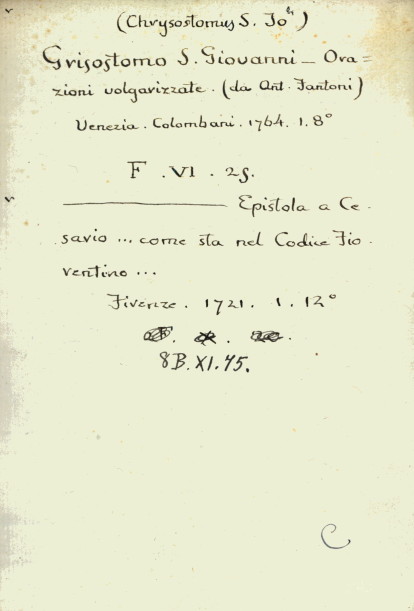 (Chrysostomus S. Joh)
Grisostomo S. Giovanni _ Ora=
zioni volgarizzate. (da Ant. Fantoni)
Venezia. Colombani. 1764. 1. 8°
F. VI. 25.
——— Epistola a Ce-
sario ... come sta nel Codice Fio-
rentino ...
Firenze. 1721. 1. 12°
8B. XI. 75.
C